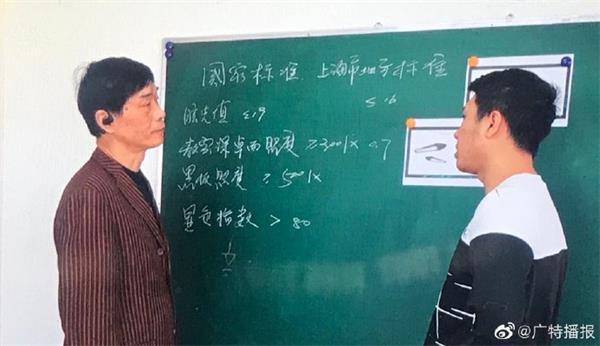 国家标准 上海市地方标准
眩光值 ≤19 ≤16
教室课桌面照度 ≥300lx 0.7
黑板照度 ≥500lx
显色指数 > 80
@广特播报